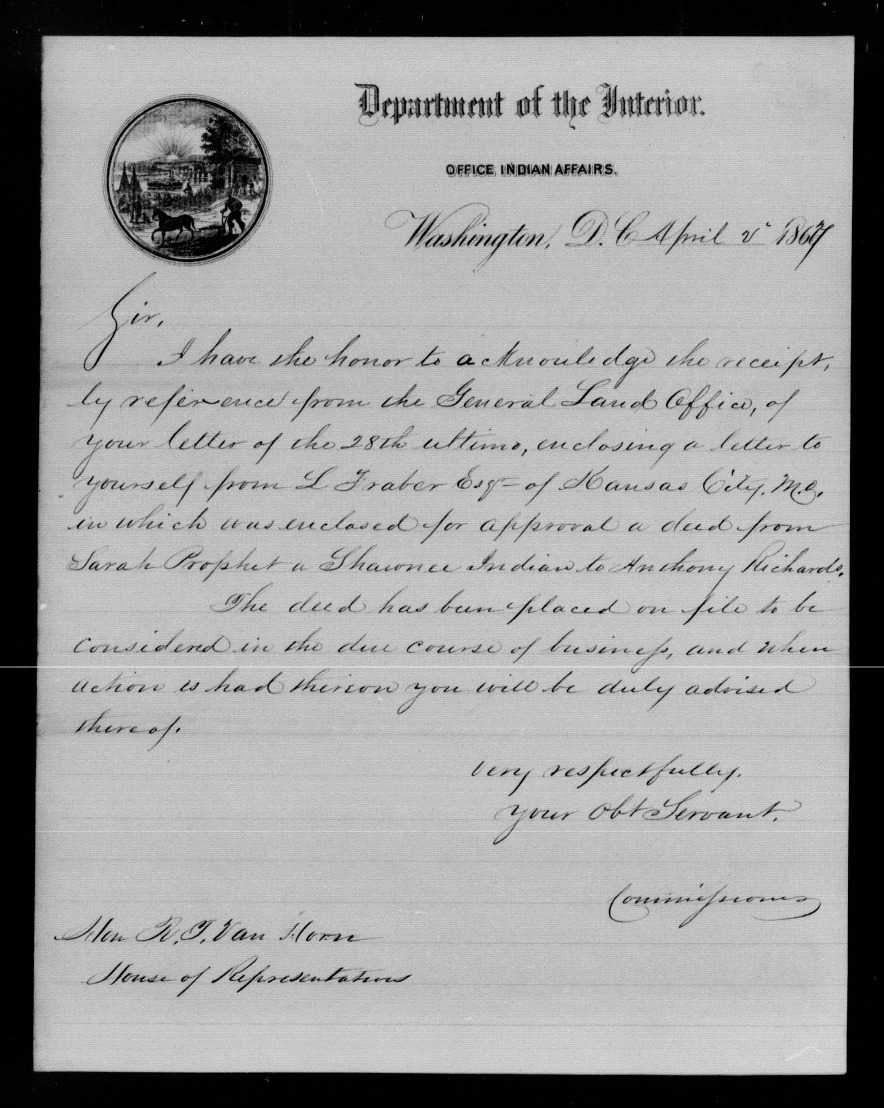 Department of the Interior.
OFFICE INDIAN AFFAIRS.
Washington, D. C. April 2d 1867
Sir,
I have the honor to acknowledge the receipt,
by reference from the General Land Office, of
your letter of the 28th ultimo, enclosing a letter to
yourself from L Fraber Esqr of Kansas City, Mo.
in which was enclosed for approval a deed from
Sarah Prophet a Shawnee Indian to Anthony Richards.
The deed has been placed on file to be
considered in the due course of business, and when
action is had thereon you will be duly advised
thereof.
Very respectfully.
Your Obt Servant.
Commissioner
Hon R. T. Van Horn
House of Representatives